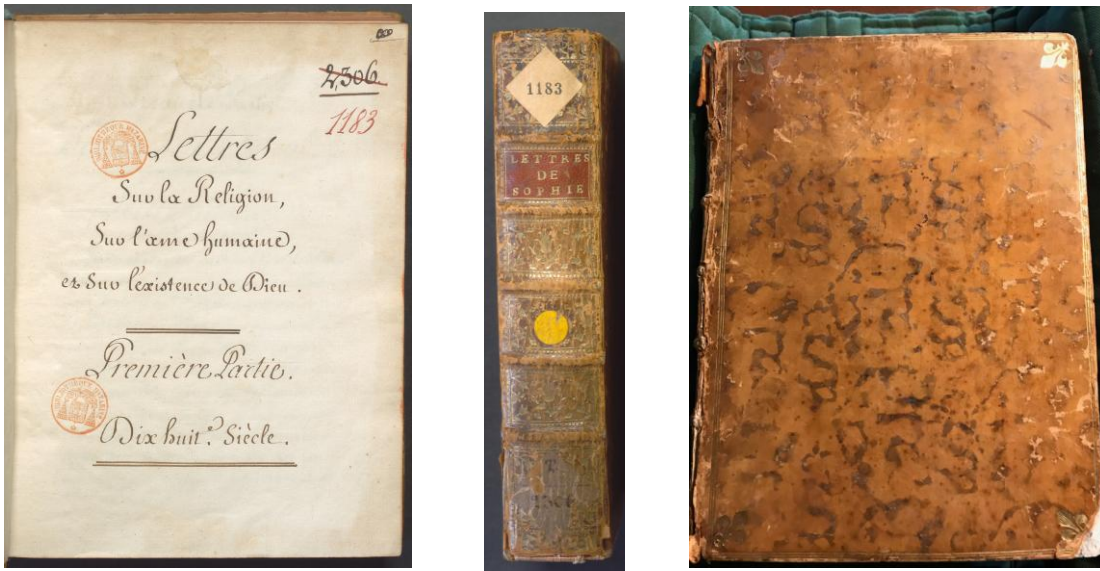 2,306
1183
Lettres
Sur la Religion,
Sur l'ame humaine,
et Sur l'existence de Dieu.
Première Partie.
Dix huit.e Siècle.
1183
LETTRES
DE
SOPHIE